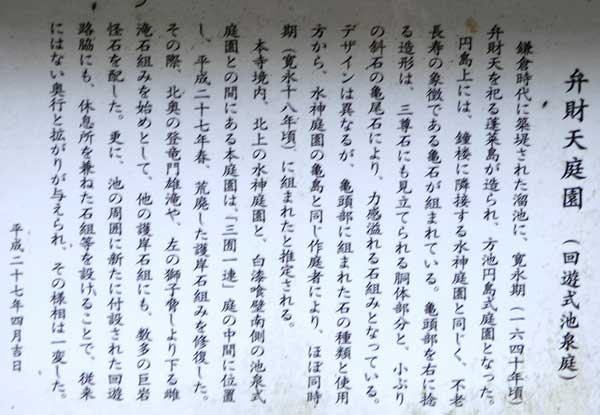 弁財天庭園（回遊式池泉庭）
鎌倉時代に築堤された溜池に、寛永期（一六四十年頃）
弁財天を祀る蓬莱島が造られ、方池円島式庭園となった。
円島上には、鐘楼に隣接する水神庭園と同じく、不老
長寿の象徴である亀石が組まれている。亀頭部を右に捻
る造形は、三尊石にも見立てられる胴体部分と、小ぶり
の斜石の亀尾石により、力感溢れる石組みとなっている。
デザインは異なるが、亀頭部に組まれた石の種類と使用
方から、水神庭園の亀島と同じ作庭者により、ほぼ同時
期（寛永十八年頃）に組まれたと推定される。
本寺境内、北上の水神庭園と、白漆喰壁南側の池泉式
庭園との間にある本庭園は、「三囿一連」庭の中間に位置
し、平成二十七年春、荒廃した護岸石組みを修復した。
その際、北奥の登竜門雄滝や、左の獅子脅しより下る雌
滝石組みを始めとして、他の護岸石組にも、数多の巨岩
怪石を配した。更に、池の周囲に新たに付設された回遊
路脇にも、休息所を兼ねた石組等を設けることで、従来
にはない奥行と拡がりが与えられ、その様相は一変した。
平成二十七年四月吉日